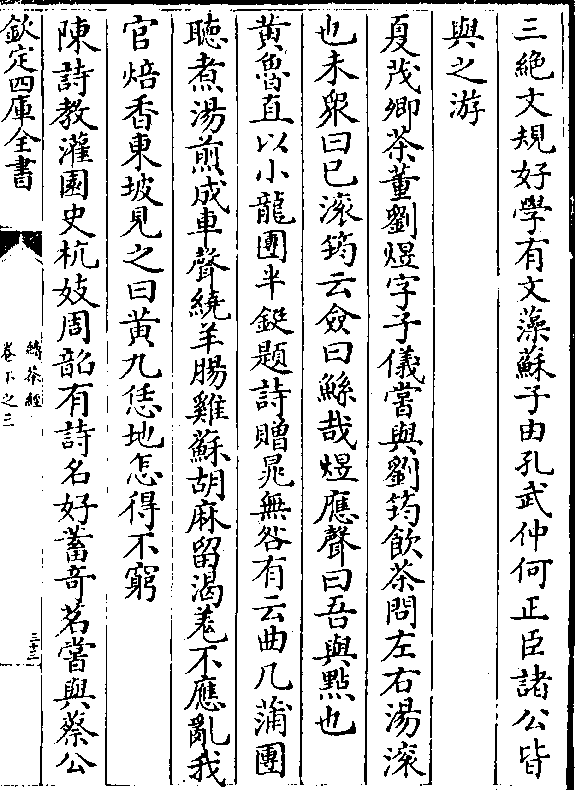 三絶文規好學有文藻蘇子由孔武仲何正臣諸公皆
與之游
夏茂卿茶董劉煜字子儀嘗與劉筠飲茶問左右湯滚
也未衆曰已滚筠云僉曰鯀哉煜應聲曰吾與㸃也
黄魯直以小龍團半鋌題詩贈晁無咎有云曲几蒲團
聽煮湯煎成車聲繞羊腸雞蘇胡麻留渴羌不應亂我
官焙香東坡見之曰黄九恁地怎得不窮
陳詩教灌園史杭妓周韶有詩名好蓄竒茗嘗與蔡公
欽定四庫全書
續茶經
卷下之三
三十三